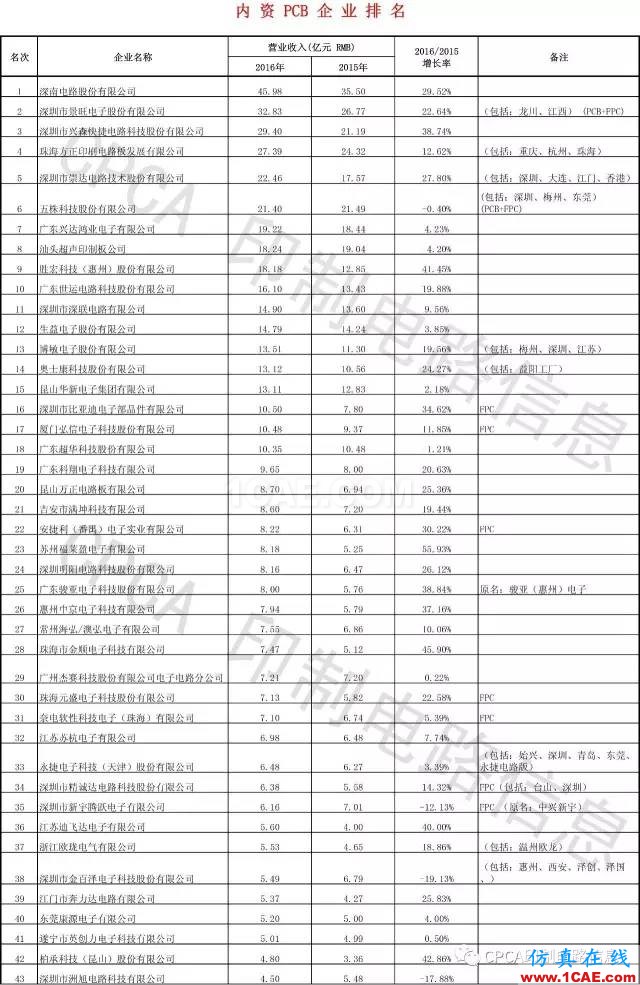 内 资 PCB 企 业 排 名
名次 企业名称 营业收入(亿元 RMB) 2016/2015 增长率 备注
2016年 2015年
1 深南电路股份有限公司 45.98 35.50 29.52%
2 深圳市景旺电子股份有限公司 32.83 26.77 22.64% (包括:龙川、江西) (PCB+FPC)
3 深圳市兴森快捷电路科技股份有限公司 29.40 21.19 38.74%
4 珠海方正印刷电路板发展有限公司 27.39 24.32 12.62% (包括:重庆、杭州、珠海)
5 深圳市崇达电路技术股份有限公司 22.46 17.57 27.80% (包括:深圳、大连、江门、香港)
6 五株科技股份有限公司 21.40 21.49 -0.40% (包括:深圳、梅州、东莞) (PCB+FPC)
7 广东兴达鸿业电子有限公司 19.22 18.44 4.23%
8 汕头超声印制板公司 18.24 19.04 4.20%
9 胜宏科技(惠州)股份有限公司 18.18 12.85 41.45%
10 广东世运电路科技股份有限公司 16.10 13.43 19.88%
11 深圳市深联电路有限公司 14.90 13.60 9.56%
12 生益电子股份有限公司 14.79 14.24 3.85%
13 博敏电子股份有限公司 13.51 11.30 19.56% (包括:梅州、深圳、江苏)
14 奥士康科技股份有限公司 13.12 10.56 24.27% (包括:益阳工厂)
15 昆山华新电子集团有限公司 13.11 12.83 2.18%
16 深圳市比亚迪电子部品件有限公司 10.50 7.80 34.62% FPC
17 厦门弘信电子科技股份有限公司 10.48 9.37 11.85% FPC
18 广东超华科技股份有限公司 10.35 10.48 1.21%
19 广东科翔电子科技有限公司 9.65 8.00 20.63%
20 昆山万正电路板有限公司 8.70 6.94 25.36%
21 吉安市满坤科技有限公司 8.60 7.20 19.44%
22 安捷利(番禺)电子实业有限公司 8.22 6.31 30.22% FPC
23 苏州福莱盈电子有限公司 8.18 5.25 55.93%
24 深圳明阳电路科技股份有限公司 8.16 6.47 26.12%
25 广东骏亚电子科技股份有限公司 8.00 5.76 38.84% 原名:骏亚(惠州)电子
26 惠州中京电子科技有限公司 7.94 5.79 37.16%
27 常州海弘/澳弘电子有限公司 7.55 6.86 10.06%
28 珠海市金顺电子科技有限公司 7.47 5.12 45.90%
29 广州杰赛科技股份有限公司电子电路分公司 7.21 7.20 0.22%
30 珠海元盛电子科技股份有限公司 7.13 5.82 22.58% FPC
31 奈电软性科技电子(珠海)有限公司 7.10 6.74 5.39% FPC
32 江苏苏杭电子有限公司 6.98 6.48 7.74%
33 永捷电子科技(天津)股份有限公司 6.48 6.27 3.39% (包括:始兴、深圳、青岛、东莞、永捷电路版)
34 深圳市精诚达电路科技股份有限公司 6.38 5.58 14.32% FPC(包括:台山、深圳)
35 深圳市新宇腾跃电子有限公司 6.16 7.01 -12.13% FPC (原名:中兴新宇)
36 江苏迪飞达电子有限公司 5.60 4.00 40.00%
37 浙江欧珑电气有限公司 5.53 4.65 18.86% (包括:温州欧龙)
38 深圳市金百泽电子科技股份有限公司 5.49 6.79 -19.13% (包括:惠州、西安、泽创、泽国、)
39 江门市奔力达电路有限公司 5.37 4.27 25.83%
40 东莞康源电子有限公司 5.20 5.00 4.00%
41 遂宁市英创力电子科技有限公司 5.01 4.99 0.50%
42 柏承科技(昆山)股份有限公司 4.80 3.36 42.86%
43 深圳市洲旭电路科技有限公司 4.50 5.48 -17.88%
CPCA 印制电路信息
CPCA 印制电路信息
1CAE.COM
CPCA印制电路信息
仿真在线
www.1CAE.com